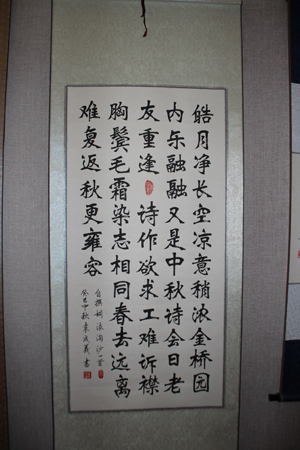 皓月净长空凉意稍浓金桥园
内乐融融又是中秋诗会日老
友重逢 诗作欲求工难诉襟
胸鬓毛霜染志相同春去远离
难复返秋更雍容
自撰词浪淘沙一首
癸巳中秋袁成義书